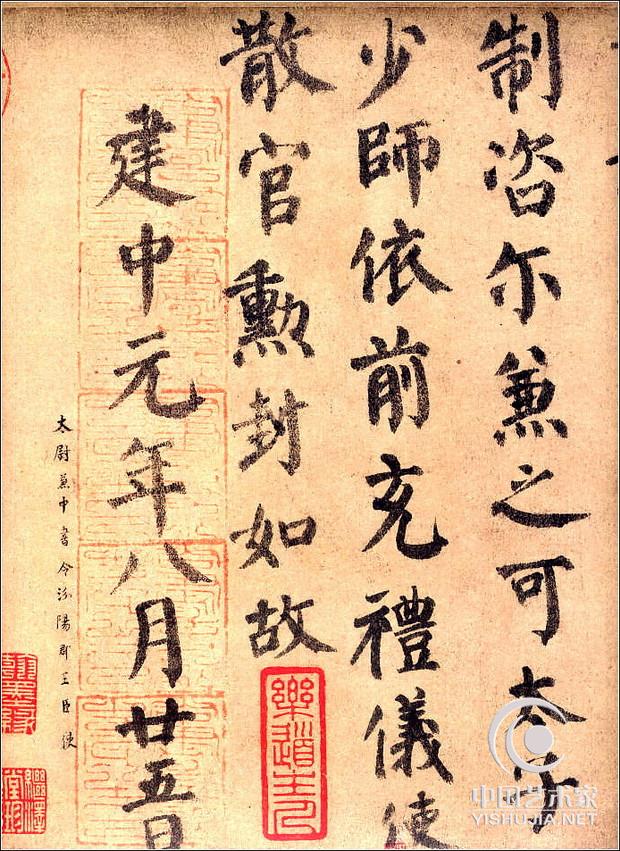 制咨尔兼之可太子
少師依前充禮儀使
散官勳封如故
建中元年八月廿五日
太尉兼中書令汾陽郡王臣使
樂道主人
中国艺术家
YISHUJIA.NET